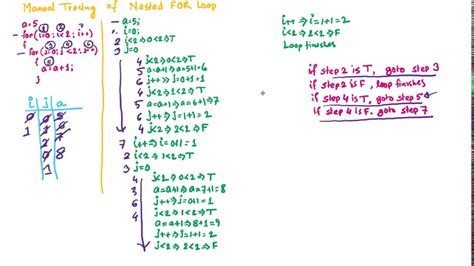 Manual Tracing of Nested FOR Loop
a=5;
for(i=0; i<2; i++)
for(j=0; j<2; j++)
a=a+1;
i j a
0 0 5
1 1 6
2 7
0 8
1
1 a=5;
i=0;
2 i<2⇒0<2⇒T
3 j=0
4 j<2⇒0<2⇒T
5 a=a+1⇒a=5+1=6
6 j++⇒j=0+1=1
4 j<2⇒1<2⇒T
5 a=a+1⇒a=6+1=7
6 j++⇒j=1+1=2
4 j<2⇒2<2⇒F
7 i++⇒i=0+1=1
2 i<2⇒1<2⇒T
3 j=0
4 j<2⇒0<2⇒T
3 a=a+1⇒a=7+1=8
6 j++⇒j=0+1=1
4 j<2⇒1<2⇒T
a=a+1⇒a=8+1=9
j++⇒j=1+1=2
j<2⇒2<2⇒F
i++⇒i=1+1=2
i<2⇒2<2⇒F
Loop finishes
if step 2 is T, goto step 3
if step 2 is F, loop finishes
if step 4 is T, goto step 5
if step 4 is F, goto step 7